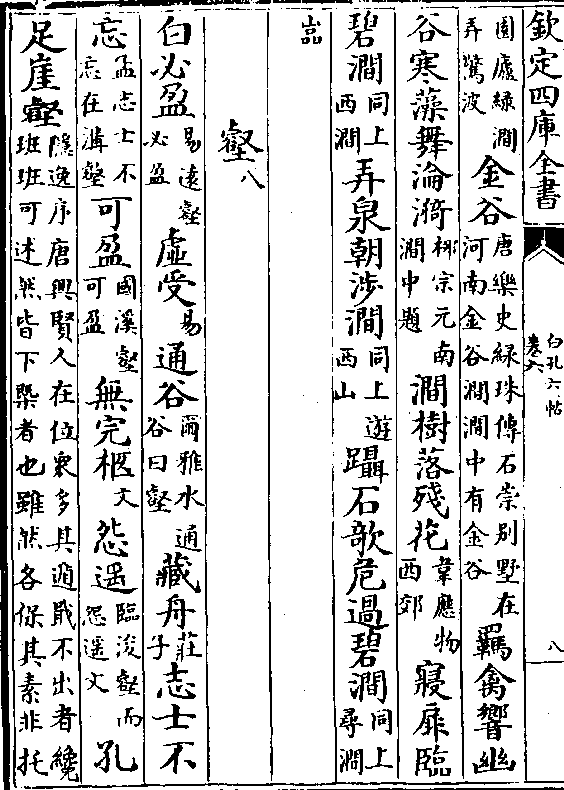 欽定四庫全書
白孔六帖
卷六
八
園廬綠澗
弄驚波
金谷
唐樂史綠珠傳石崇别墅在
河南金谷澗澗中有金谷
羈禽響幽
谷寒藻舞淪漪
栁宗元南
澗中題
澗樹落殘花
韋應物
西郊
寢扉臨
碧澗
同上
西澗
弄泉朝涉澗
同上遊
西山
躡石歌危過碧澗
同上
尋澗
嵓
壑八
白必盈
易遠壑
必盈
虛受
易
通谷
爾雅水通
谷曰壑
藏舟
莊
子
志士不
忘
孟志士不
忘在溝壑
可盈
國溪壑
可盈
無完柩
文
怨遥
臨浚壑而
怨遥文
孔
足崖壑
隱逸序唐興賢人在位衆多其遁戢不出者纔
班班可述然皆下槩者也雖然各保其素非托